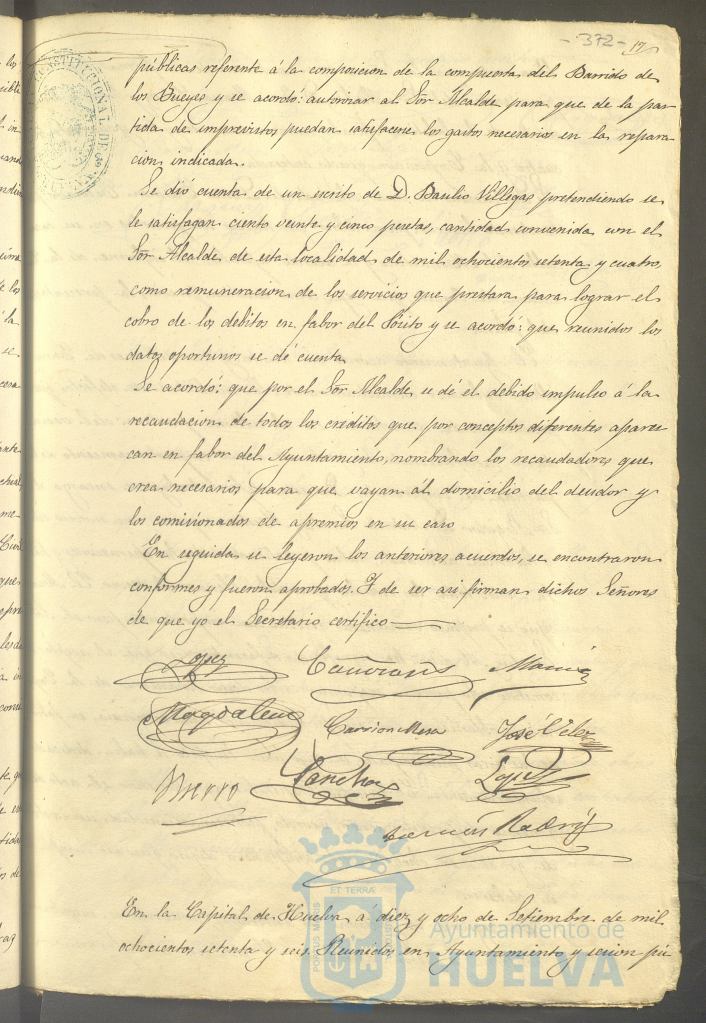 - 372 - 17
públicas referente á la composicion de la compuerta del Barrido de
los Bueyes y se acordó: autorizar al Sor Alcalde para que de la par-
tida de imprevistos puedan satisfacerse los gastos necesarios en la repara-
cion indicada.
Se dió cuenta de un escrito de D. Basilio Villegas pretendiendo se
le satisfagan ciento veinte y cinco pesetas, cantidad convenida con el
Sor Alcalde de esta localidad de mil ochocientos setenta y cuatro,
como remuneracion de los servicios que prestara para lograr el
cobro de los debitos en fabor del Pósito y se acordó: que reunidos los
datos oportunos se dé cuenta
Se acordó: que por el Sor Alcalde se dé el debido impulso á la
recaudacion de todos los créditos que por conceptos diferentes aparez-
can en fabor del Ayuntamiento, nombrando los recaudadores que
crea necesarios para que vayan al domicilio del deudor y
los comisionados de apremios en su caso
En seguida se leyeron los anteriores acuerdos, se encontraron
conformes y fueron aprobados. Y de ser asi firman dichos Señores
de que yo el Secretario certifico
Lopez
Magdalena Carrion Mesa José Velez
Sanchez Lopez
En la Capital de Huelva á diez y ocho de Setiembre de mil
ochocientos setenta y seis. Reunidos en Ayuntamiento y sesion pú-
CONSTITUCIONAL DE
PORTUS MARIS ET TERRÆ
Ayuntamiento de
HUELVA